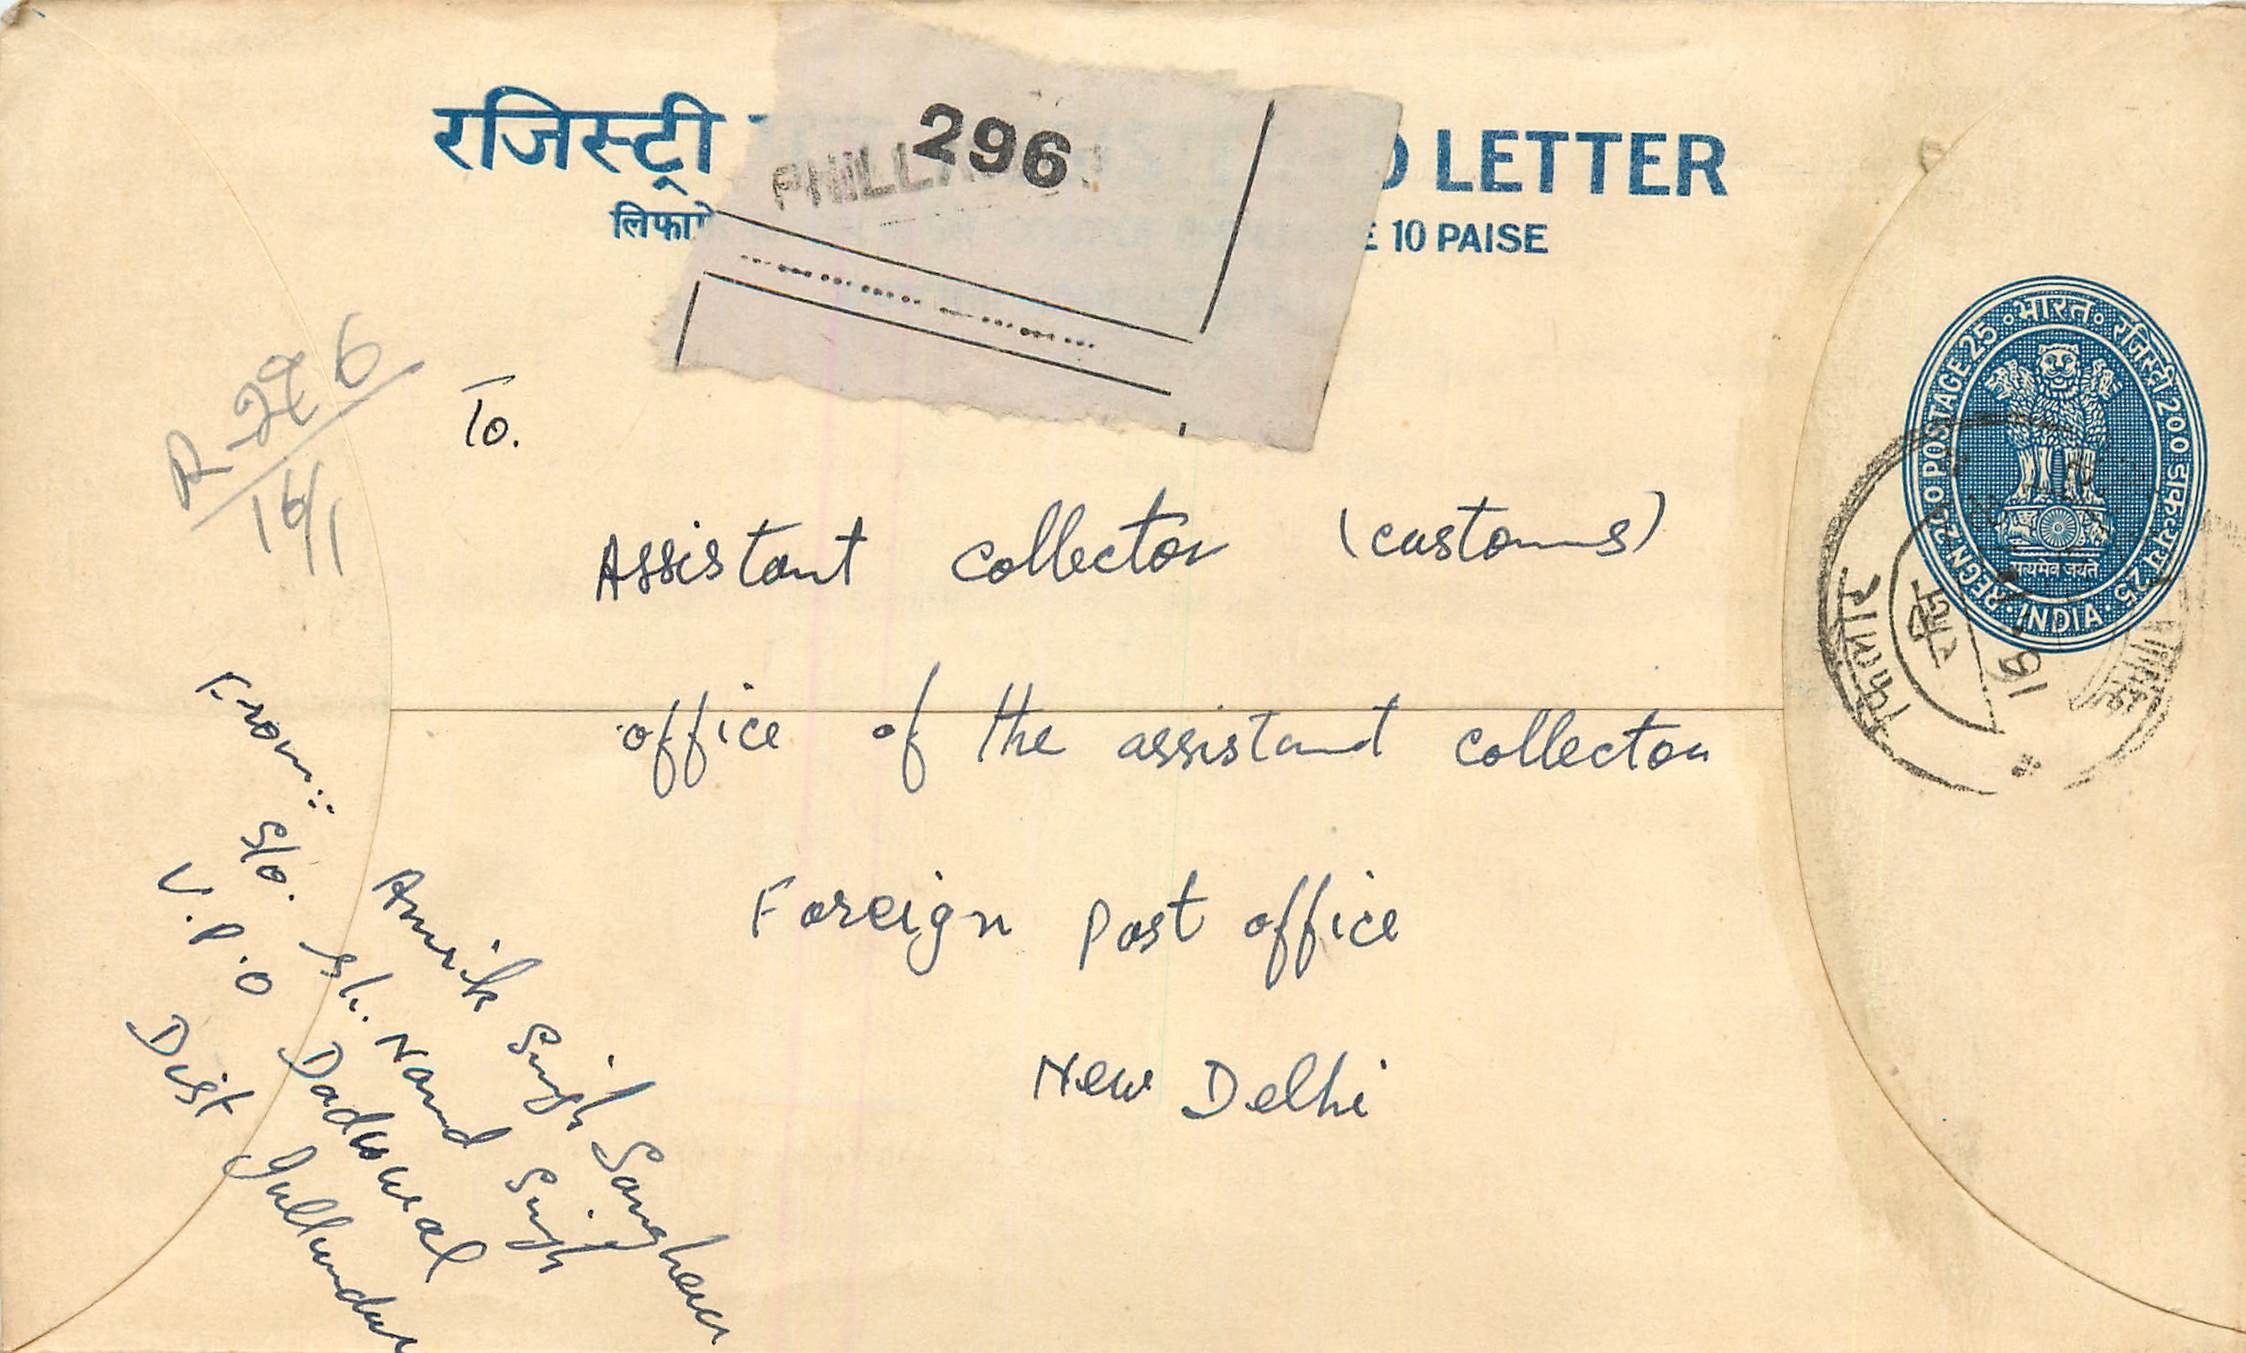 रजिस्ट्री
LETTER
10 PAISE
296
R-296
16/1
To.
Assistant collector (customs)
office of the assistant collector
Foreign Post office
New Delhi
From::
Amrik Singh Sanghera
S/o. Sh. Nand Singh
V.P.O Daduwal
Dist Jullundur
भारत
रजिस्ट्री 200 डाकव्यय 25
REGN 200 POSTAGE 25
सत्यमेव जयते
INDIA